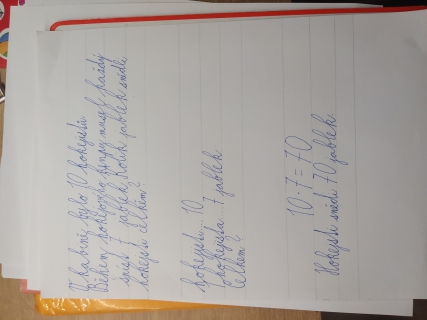 V kabině bylo 10 hokejistů.
Během hokejového kempu musel každý
sníst 7 jablek. Kolik jablek snědli
hokejisti celkem?
hokejisti... 10
1 hokejista 7 jablek
celkem?
10 · 7 = 70
Hokejisti snědli 70 jablek.